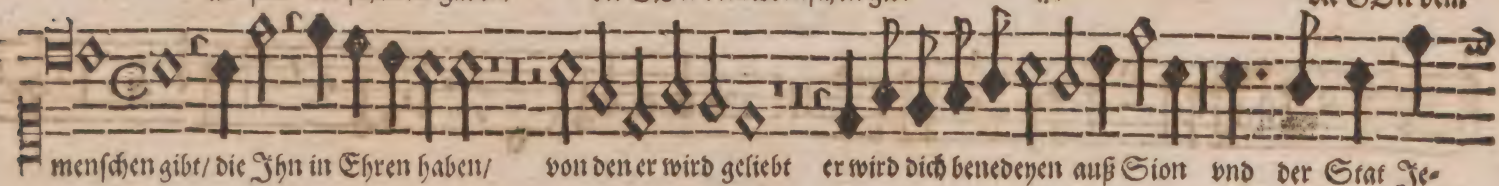 menschen gibt/ die Ihn in Ehren haben/ von den er wird geliebt er wird dich benedeyen auß Sion vnd der Stat Je-